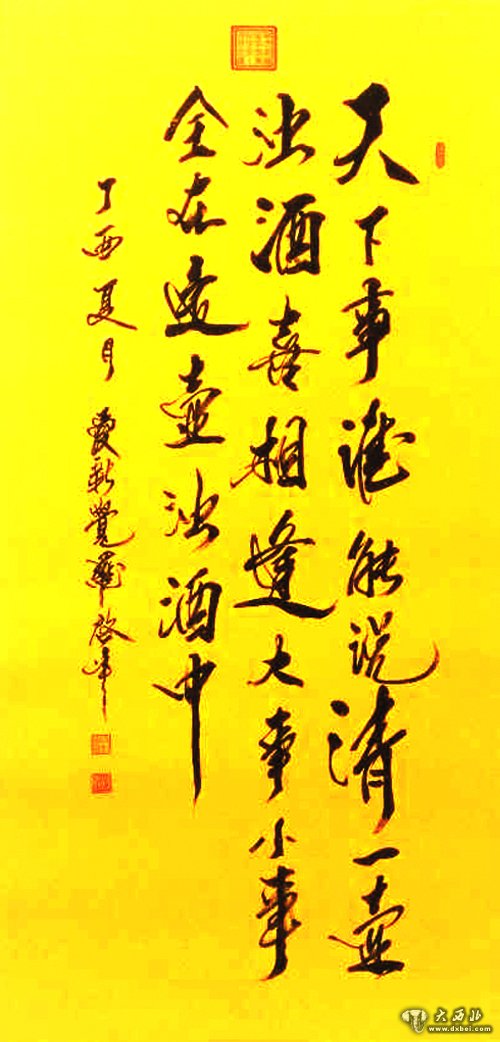 天下事谁能说清一壶
浊酒喜相逢大事小事
全在这壶浊酒中
丁酉夏月 爱新觉罗启峰
大西北
www.dxbei.com